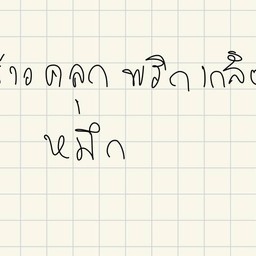 ข้าวคลุกพริกเกลือ
หมึก